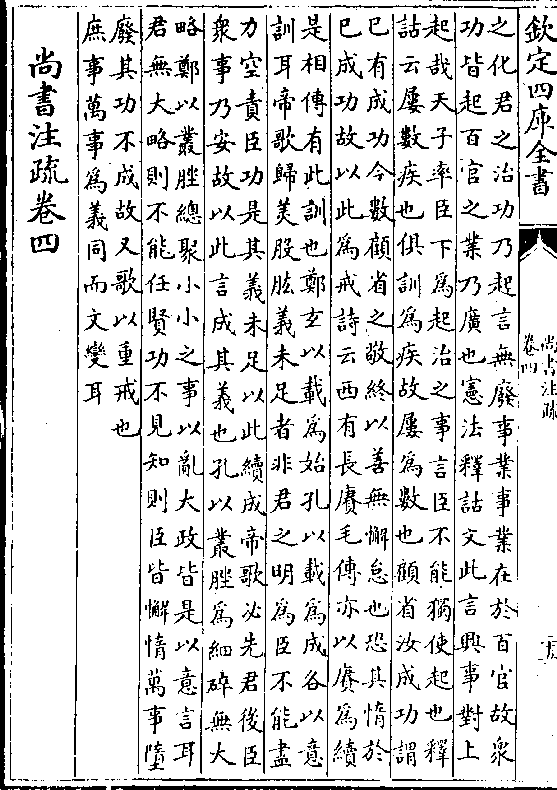 欽定四庫全書
尚書注疏
卷四
十五
之化君之治功乃起言無廢事業事業在於百官故衆
功皆起百官之業乃廣也憲法釋詁文此言興事對上
起哉天子率臣下為起治之事言臣不能獨使起也釋
詁云屢數疾也俱訓為疾故屢為數也顧省汝成功謂
已有成功今數顧省之敬終以善無懈怠也恐其惰於
已成功故以此為戒詩云西有長賡毛傳亦以賡為續
是相傳有此訓也鄭玄以載為始孔以載為成各以意
訓耳帝歌歸美股肱義未足者非君之明為臣不能盡
力空責臣功是其義未足以此續成帝歌必先君後臣
衆事乃安故以此言成其義也孔以叢脞為細碎無大
略鄭以叢脞總聚小小之事以亂大政皆是以意言耳
君無大略則不能任賢功不見知則臣皆懈惰萬事墮
廢其功不成故又歌以重戒也
庶事萬事為義同而文變耳
尚書注疏卷四